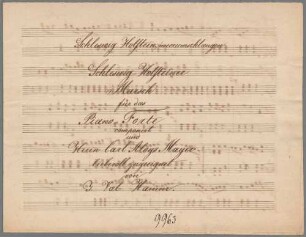 Schleswig Holstein meerumschlungen
Schleswig Holsteiner
Marsch
für das
Piano-Forte
componirt
und
Herrn Carl Aloys Mayer
von
J. Val. Hamm.
9963